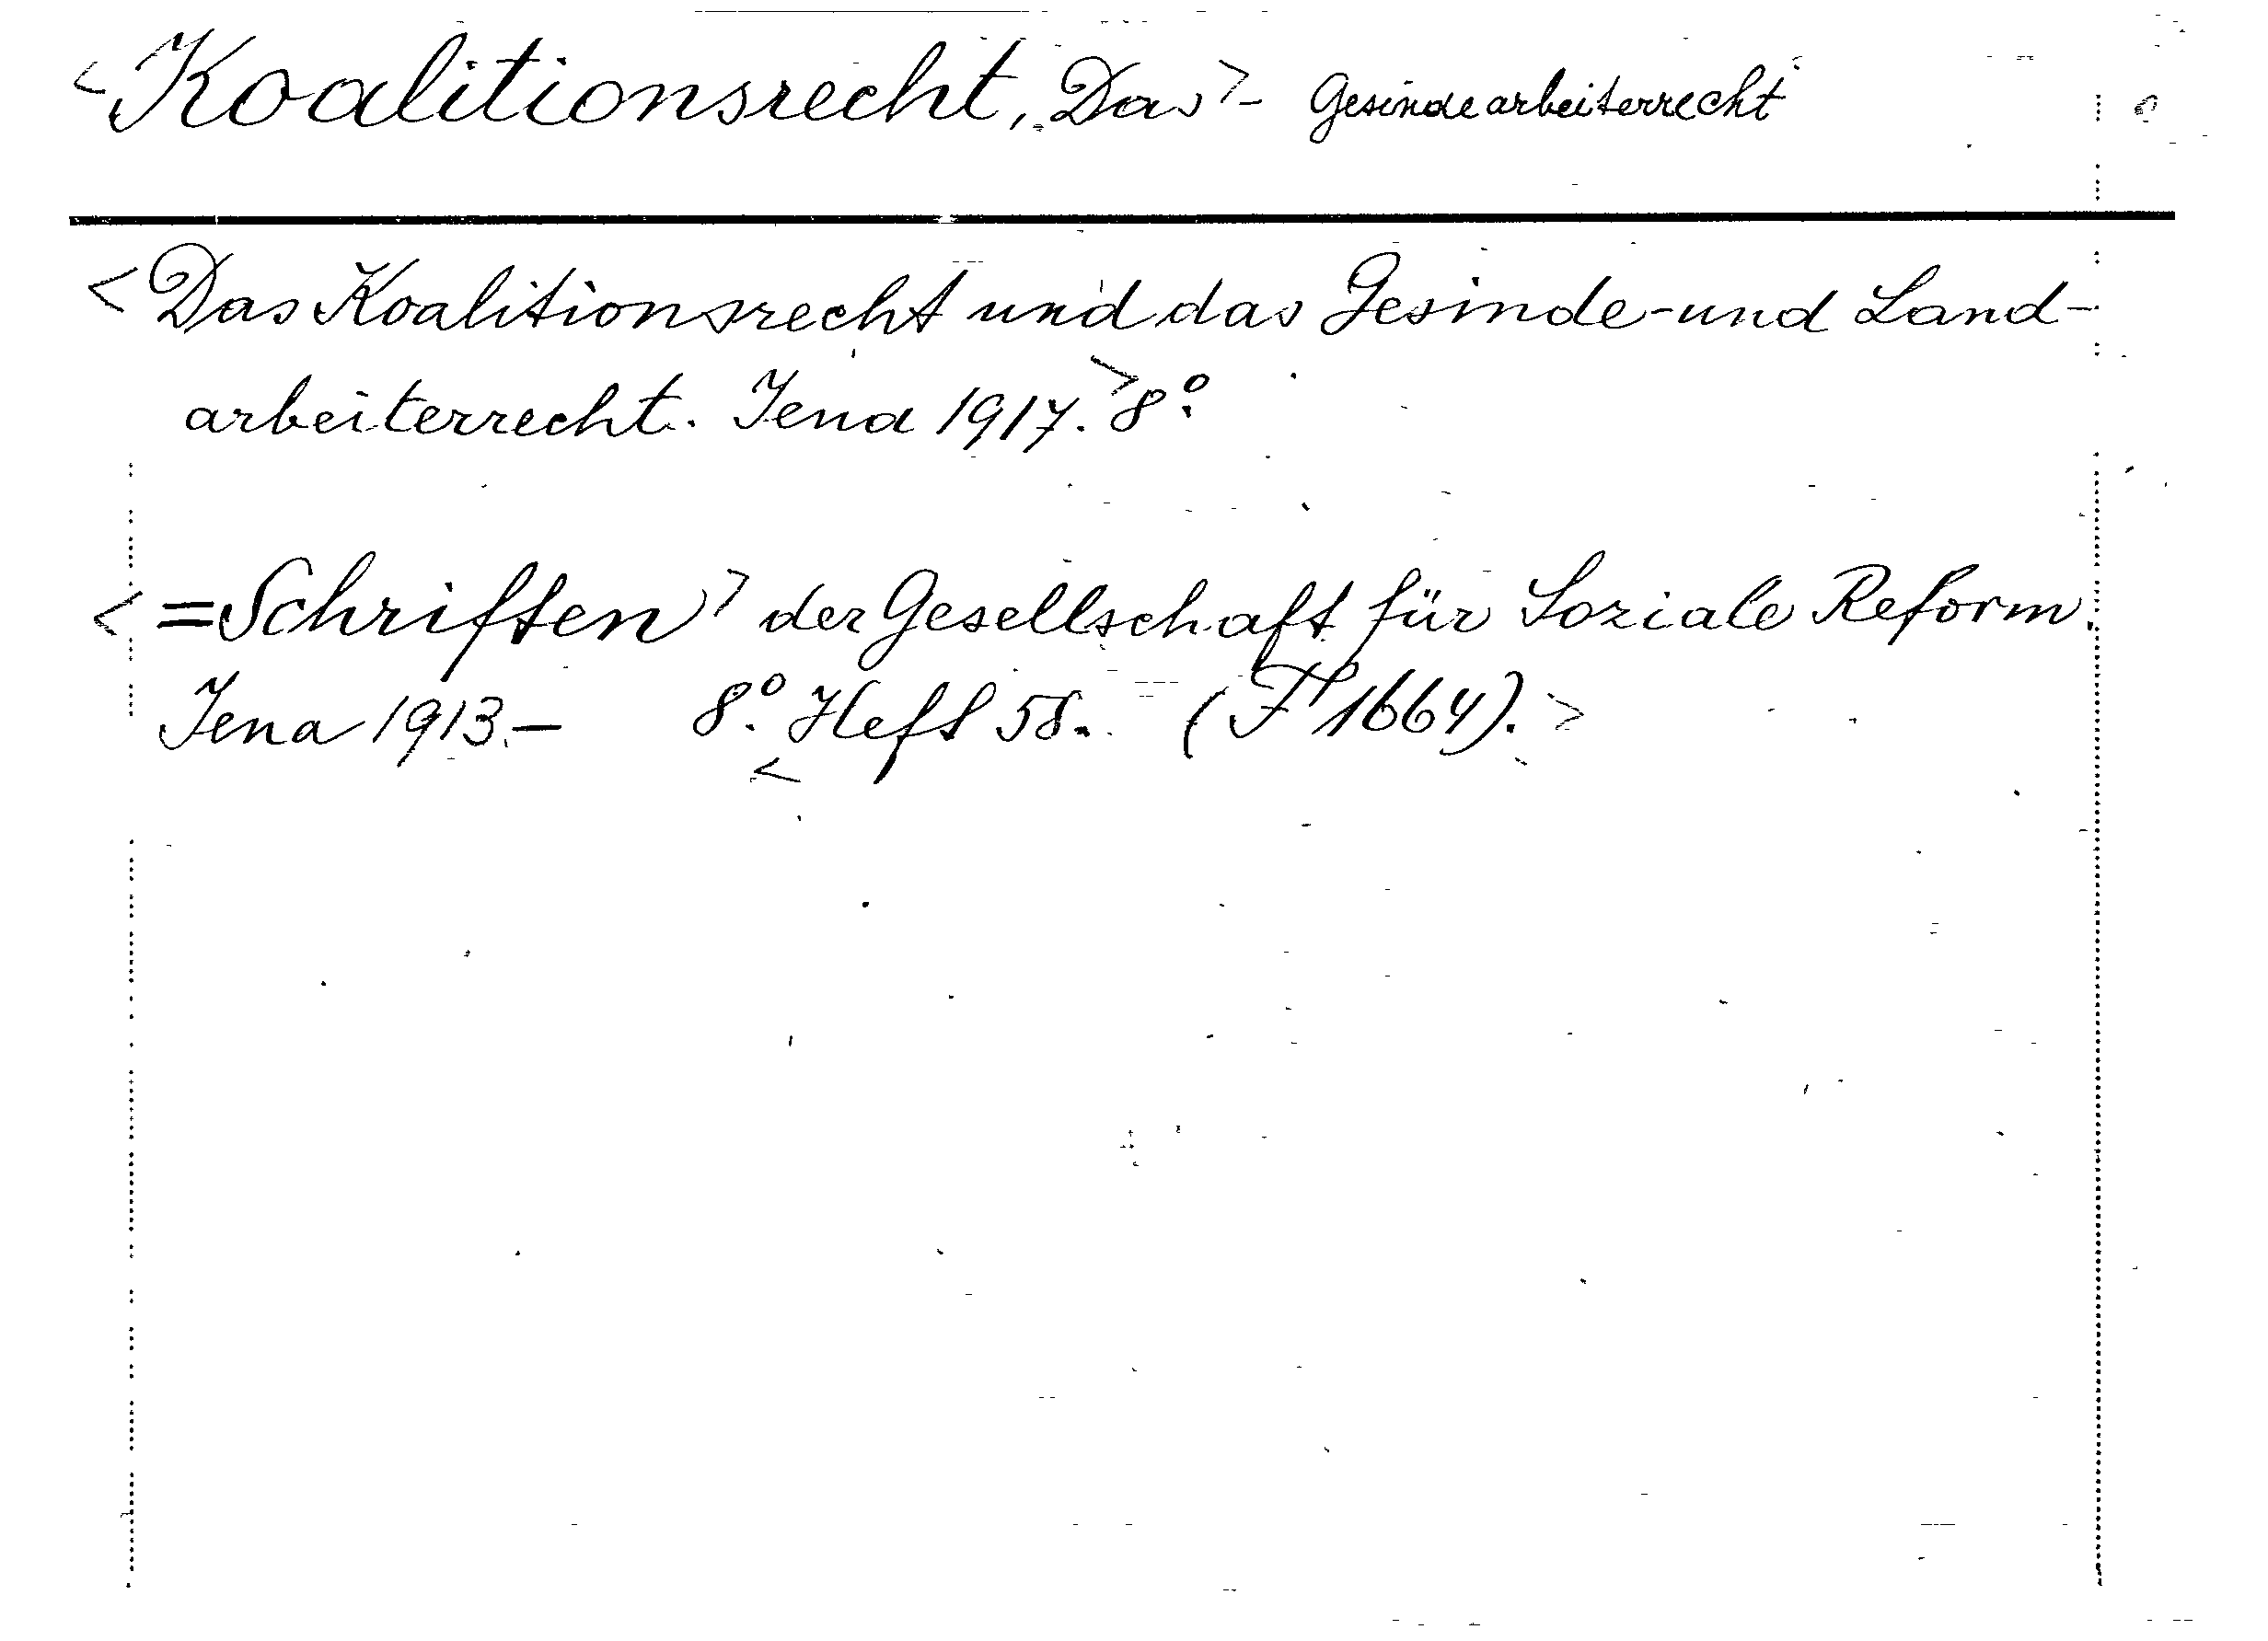 <Koalitionsrecht, Das>- Gesindearbeiterrecht
<Das Koalitionsrecht und das Gesinde- und Land-
arbeiterrecht. Jena 1917.> 8°.
<=Schriften> der Gesellschaft für Soziale Reform.
Jena 1913.- 8°. <Heft 58. (F¹¹1664).>